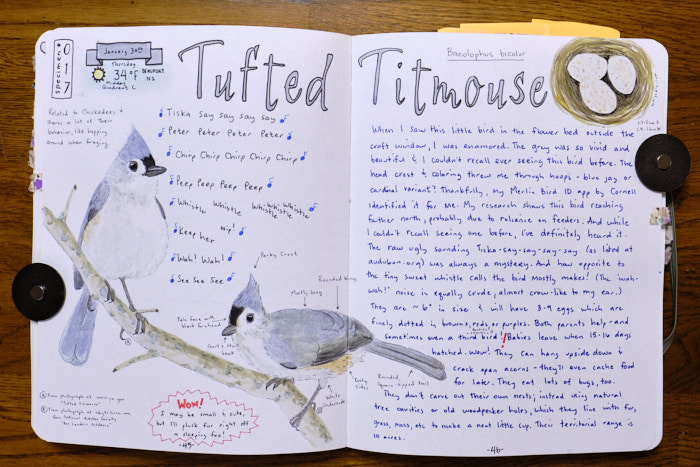 specimen
017
January 30th
Thursday
34°F
BEAUFORT
NC
Midday
Quadrant C
Tufted Titmouse
Baeolophus bicolor
Related to Chickadees &
shares a lot of their
behavior, like hopping
around when foraging
Tiska say say say say
Peter Peter Peter Peter
Chirp Chirp Chirp Chirp Chirp
Peep Peep Peep Peep
Whistle Whistle
Keep her
Wah! Wah!
See See See
Perky Crest
Mostly Grey
Rounded Wings
Pale face with
black forehead
Short &
beak
Rusty
sides
White
Underside
Rounded,
Square-tipped tail
From photograph at
From photograph at
Wow!
I may be small & cute,
but I'll pluck fur right off
a sleeping fox!
-45-
When I saw this little bird in the flower bed outside the
croft window, I was enamored. The grey was so vivid and
beautiful & I couldn't recall ever seeing this bird before. The
head crest & coloring threw me through hoops - blue jay or
cardinal variant? Thankfully, my Merlin Bird ID app by Cornell
identified it for me. My research shows this bird reaching
further north, probably due to reliance on feeders. And while
I couldn't recall seeing one before, I've definitely heard it.
The raw ugly sounding Tiska-say-say-say-say (as listed at
audubon.org) was always a mystery. And how opposite to
the tiny sweet whistle calls the bird mostly makes! (The 'wah-
wah!' noise is equally crude, almost crow-like to my ear.)
They are ~6" in size & will have 3-9 eggs which are
finely dotted in browns, reds, or purples. Both parents help - and
sometimes even a third bird! Babies leave when 15-16 days
hatched. Wow! They can hang upside down &
crack open acorns - they'll even cache food
for later. They eat lots of bugs, too.
They don't carve out their own nests; instead using natural
tree cavities or old woodpecker holes, which they line with fur,
grass, moss, etc to make a neat little cup. Their territorial range is
10 acres.
-46-